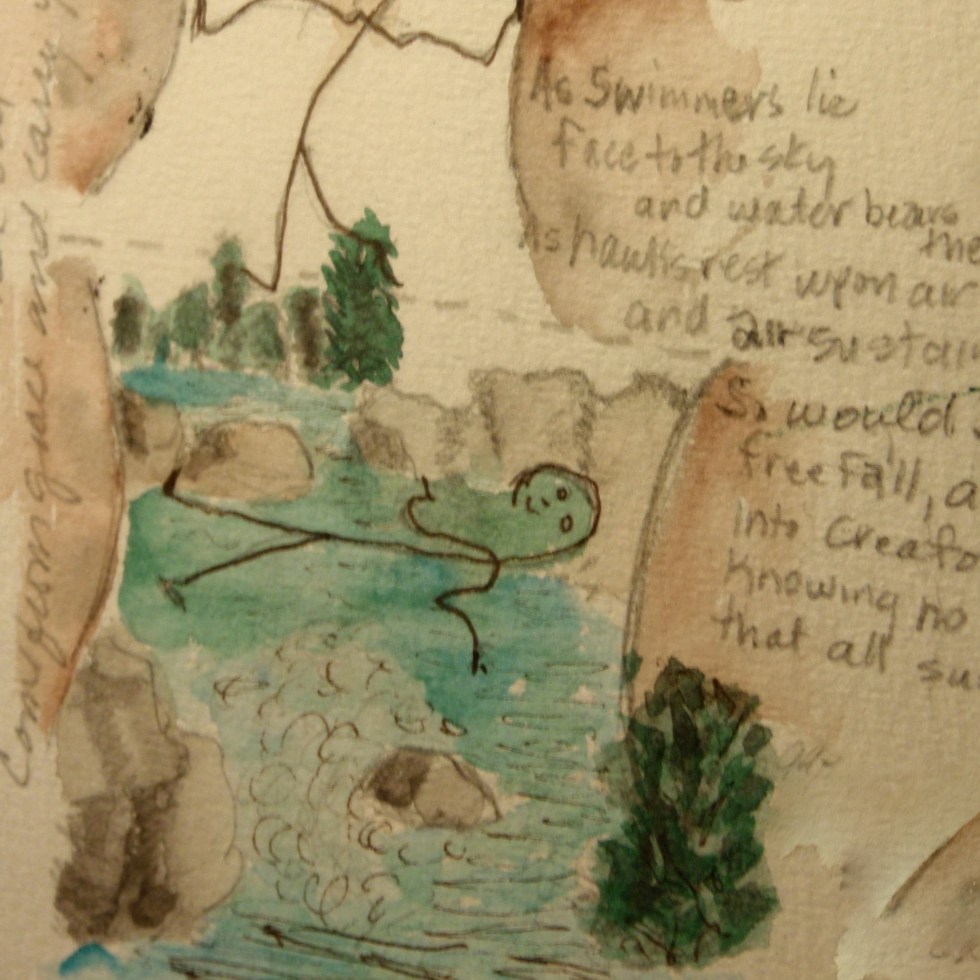 As Swimmers lie
Face to the sky
and water bears
the
As hawks rest upon air
and air sustai
So would
freefall, a
Into Creato
Knowing no
that all su
Comes from grace and care